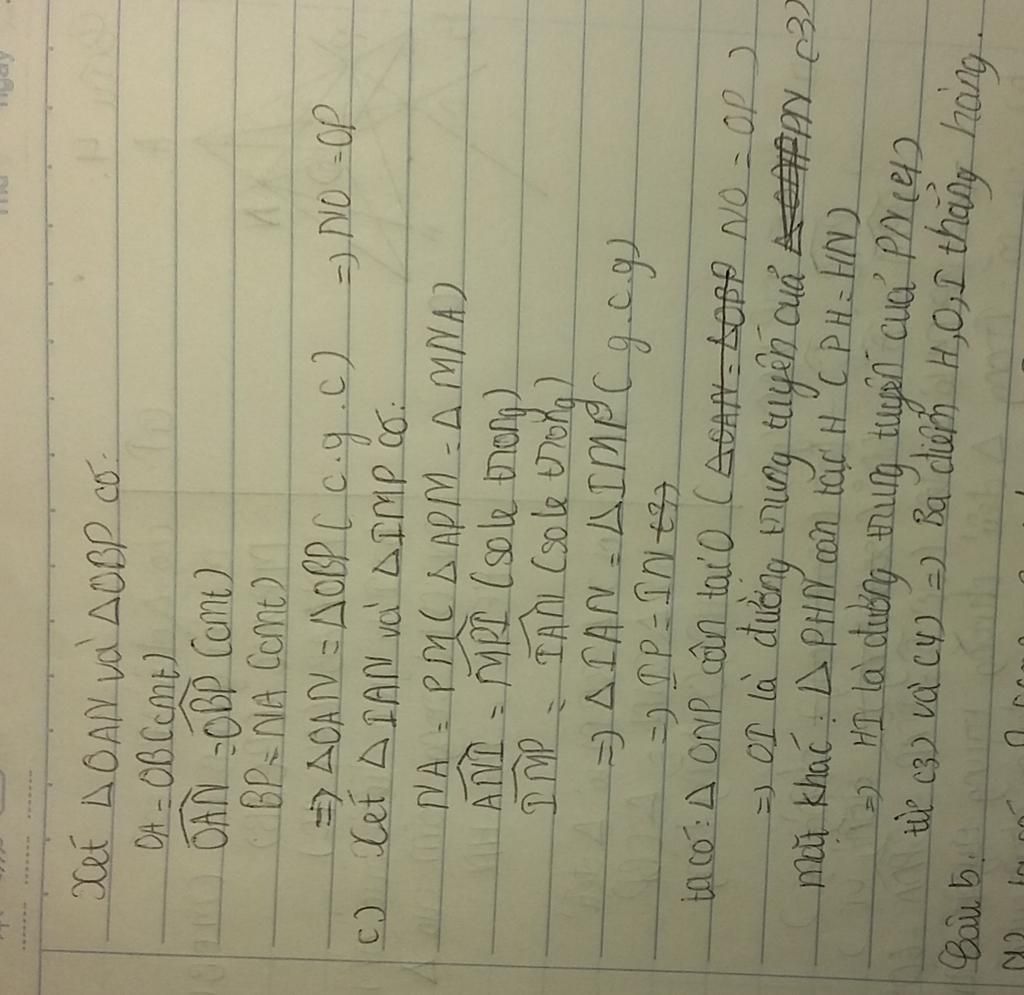 Xét ΔOAN và ΔOBP có:
OA = OB (cmt)
OAN = OBP (cmt)
BP = NA (cmt)
=> ΔOAN = ΔOBP (c.g.c) => NO = OP
c.) Xét ΔIAN và ΔIMP có:
NA = PM (ΔAPM = ΔMNA)
ANI = MPI (sole trong)
IMP = IAN (sole trong)
=> ΔIAN = ΔIMP (g.c.g)
=> IP = IN
ta có: ΔONP cân tại O (ΔOAN = ΔOBP NO = OP)
=> OI là đường trung tuyến cuả PN (3)
mặt khác: ΔPHN cân tại H (PH = HN)
=> HI là đường trung tuyến cuả PN (4)
từ (3) và (4) => Ba điểm H, O, I thẳng hàng.
Câu 5.